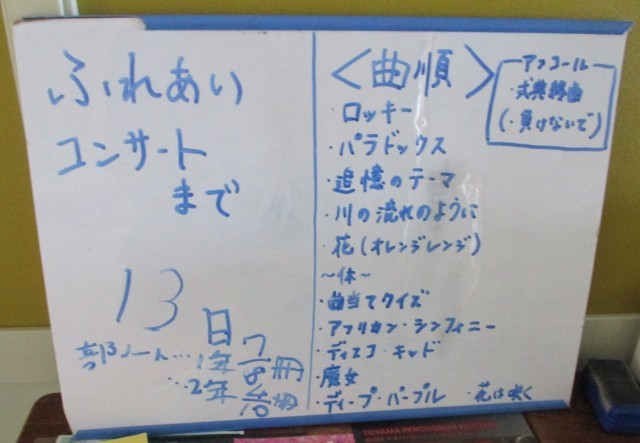 ふれあい
コンサート
まで
13日
部ノート… 1年 7/8冊
…2年 6/10冊
<曲順>
・ロッキー
・パラドックス
・追憶のテーマ
・川の流れのように
・花(オレンジレンジ)
～休～
・曲当てクイズ
・アフリカン・シンフィニー
・ディスコ・キッド
・魔女
・ディープ・パープル
・花は咲く
アンコール
・式典終曲
(・負けないで)
TOYAMA PERCUSSION FESTIVAL